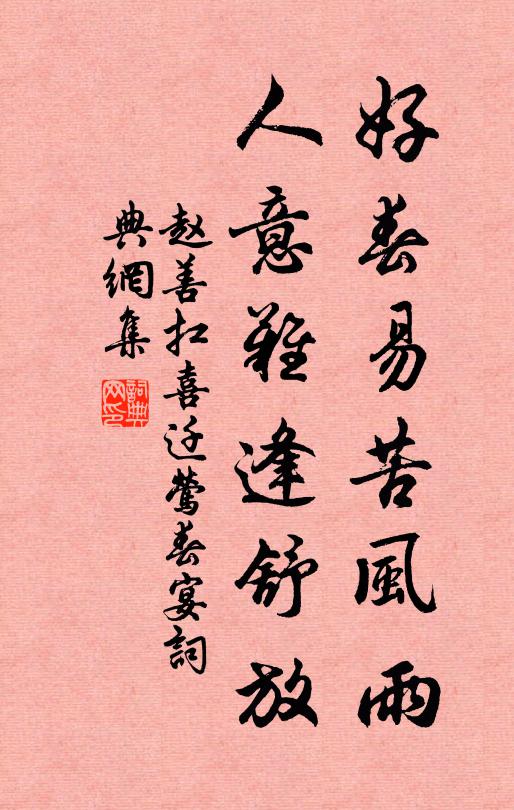 好春易苦風雨
人意難逢舒放
赵善扛喜迁鶯春宴詞
典網集
詞典網印